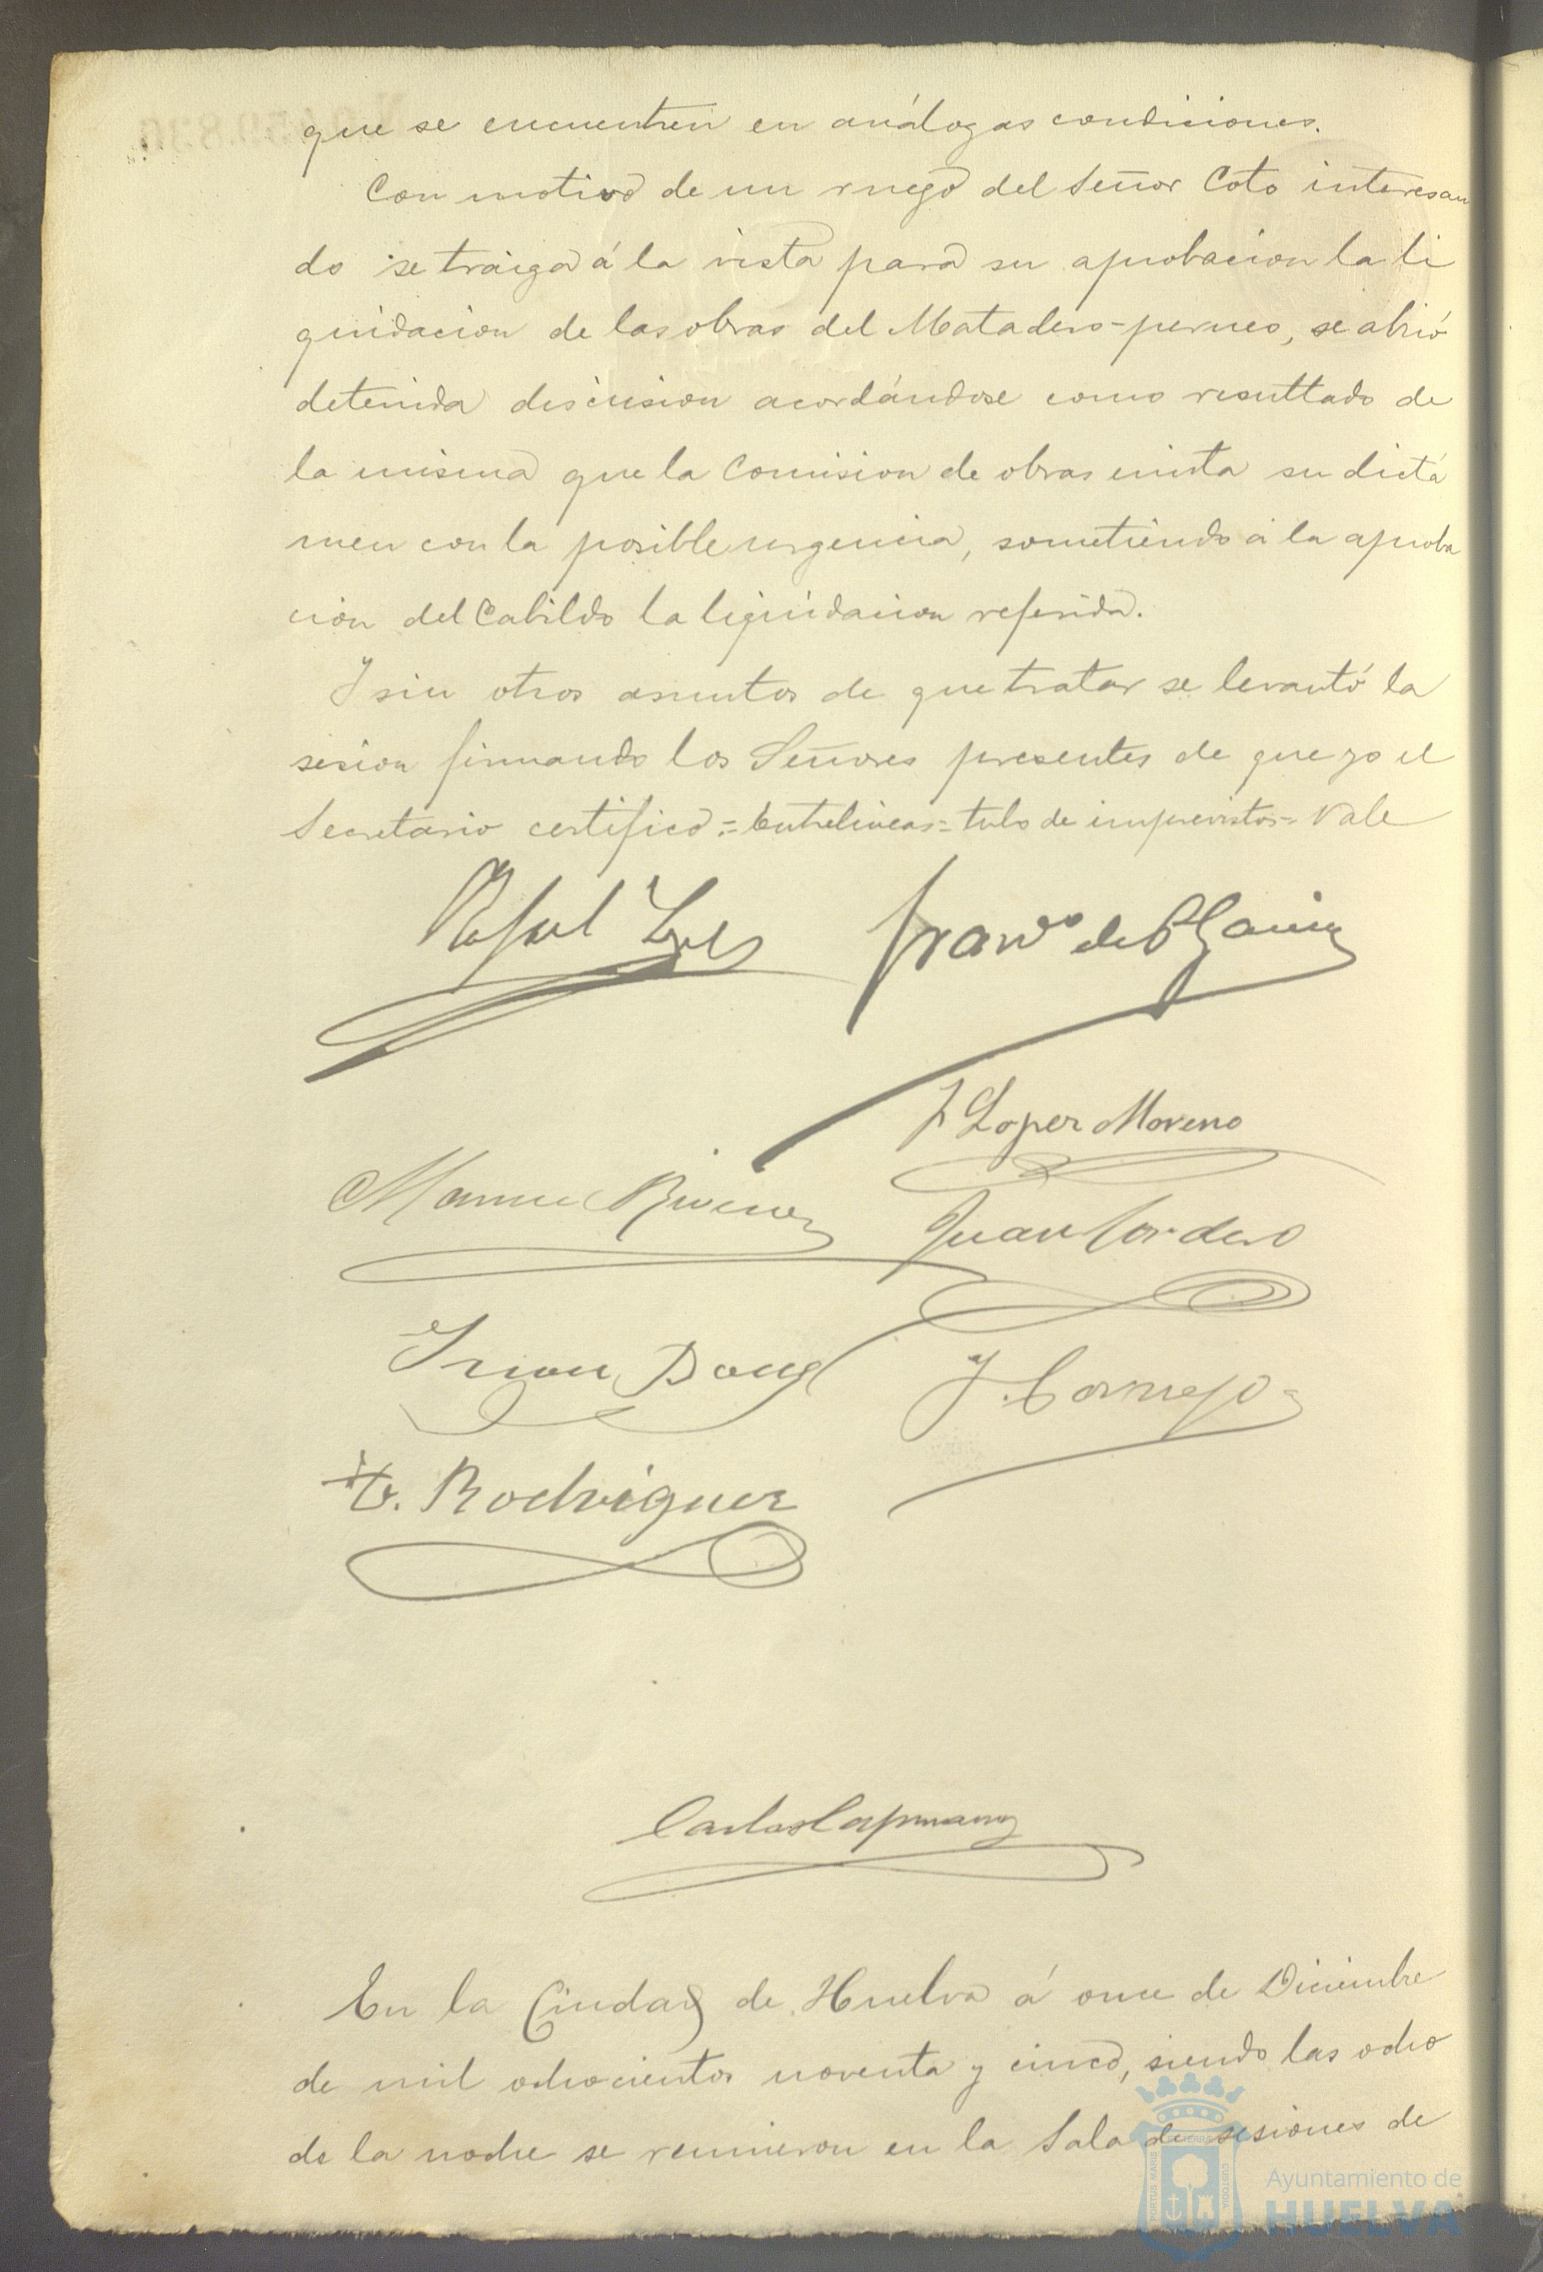 que se encuentren en análogas condiciones.
Con motivo de un ruego del Señor Coto interesan
do se traiga á la vista para su aprobacion la li
quidacion de las obras del Matadero-perneo, se abrió
detenida discusion acordándose como resultado de
la misma que la Comision de obras emita su dictá
men con la posible urgencia, sometiendo á la aproba
cion del Cabildo la liquidacion referida.
Y sin otros asuntos de que tratar se levantó la
sesion firmando los Señores presentes de que yo el
Secretario certifico = Entrelineas = tulo de imprevistos = Vale
Rafael
Franco de P
J Lopez Moreno
Manuel
Juan Cordero
Juan
J. Cornejo
Rodriguez
Carlos Capmany
En la Ciudad de Huelva á once de Diciembre
de mil ochocientos noventa y cinco, siendo las ocho
de la noche se reunieron en la Sala de sesiones de
PORTUS MARIS
CUSTODIA
Ayuntamiento de
HUELVA